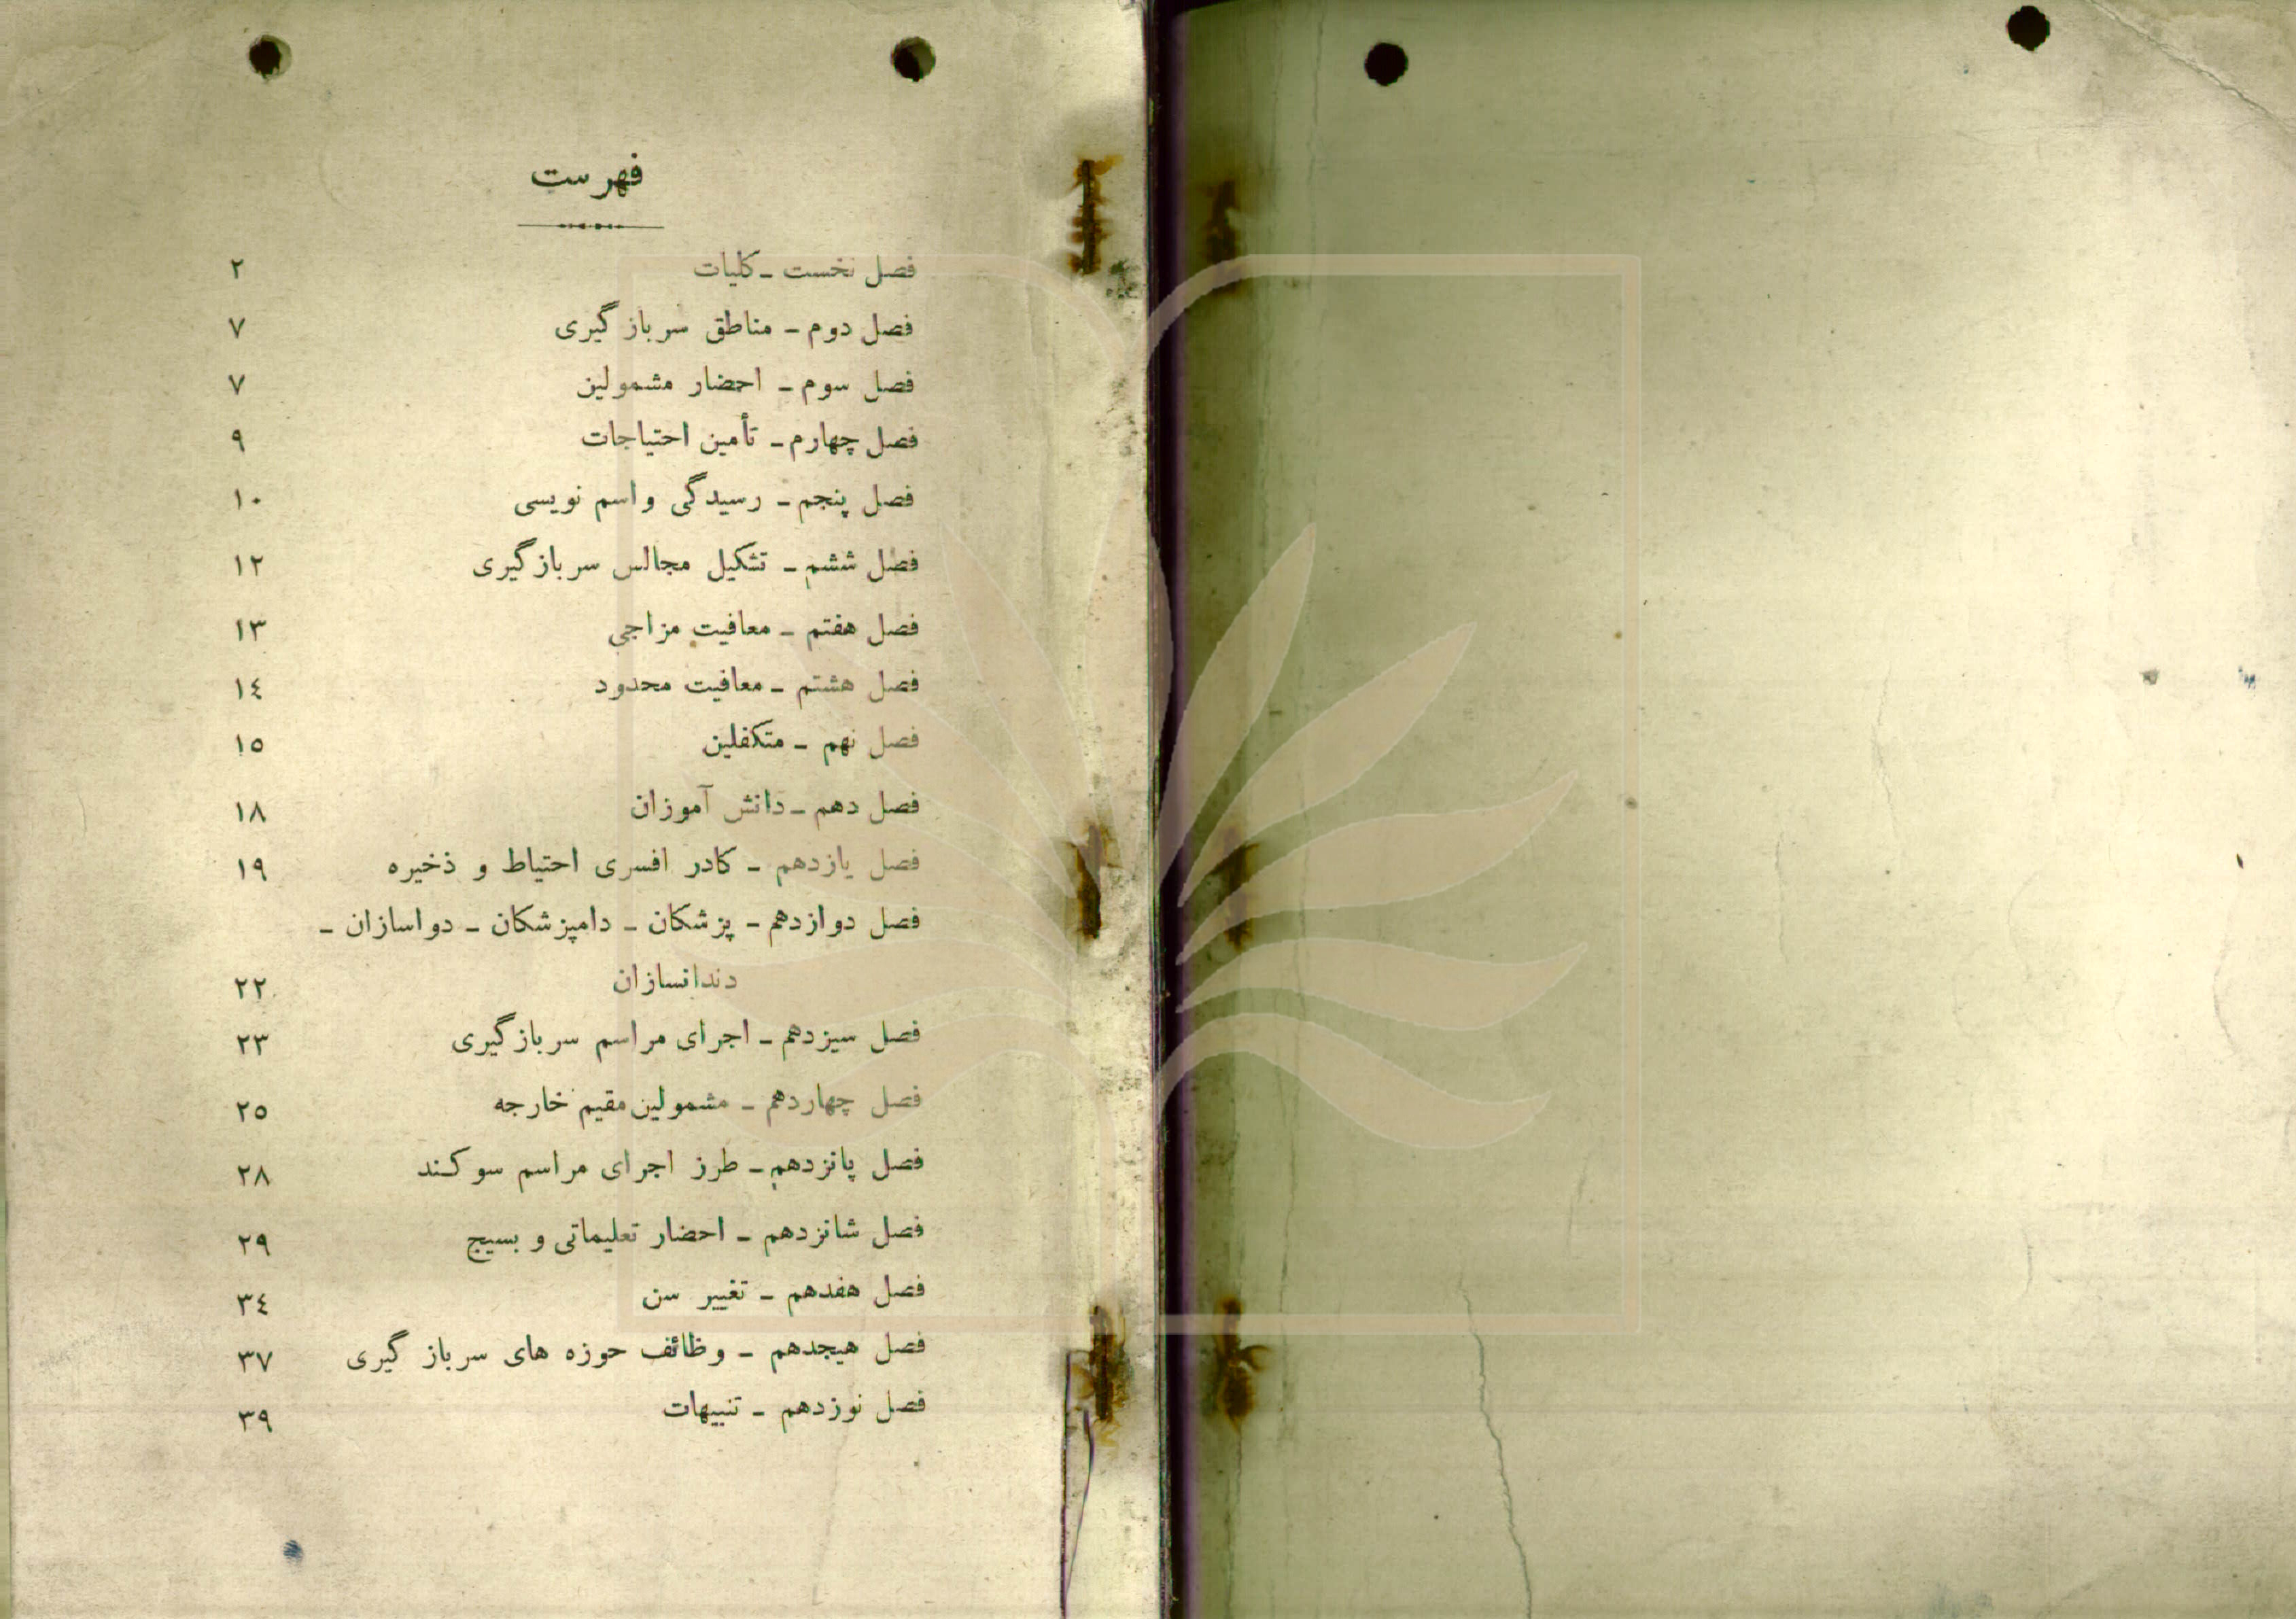 فهرست
فصل نخست ـ کلیات ۲
فصل دوم ـ مناطق سرباز گیری ۷
فصل سوم ـ احضار مشمولین ۷
فصل چهارم ـ تأمین احتیاجات ۹
فصل پنجم ـ رسیدگی و اسم نویسی ۱۰
فصل ششم ـ تشکیل مجالس سربازگیری ۱۲
فصل هفتم ـ معافیت مزاجی ۱۳
فصل هشتم ـ معافیت محدود ۱٤
فصل نهم ـ متکفلین ۱۵
فصل دهم ـ دانش آموزان ۱۸
فصل یازدهم ـ کادر افسری احتیاط و ذخیره ۱۹
فصل دوازدهم ـ پزشکان ـ دامپزشکان ـ دواسازان ـ
دندانسازان ۲۲
فصل سیزدهم ـ اجرای مراسم سربازگیری ۲۳
فصل چهاردهم ـ مشمولین مقیم خارجه ۲۵
فصل پانزدهم ـ طرز اجرای مراسم سوکند ۲۸
فصل شانزدهم ـ احضار تعلیماتی و بسیج ۲۹
فصل هفدهم ـ تغییر سن ۳٤
فصل هیجدهم ـ وظائف حوزه های سرباز گیری ۳۷
فصل نوزدهم ـ تنبیهات ۳۹